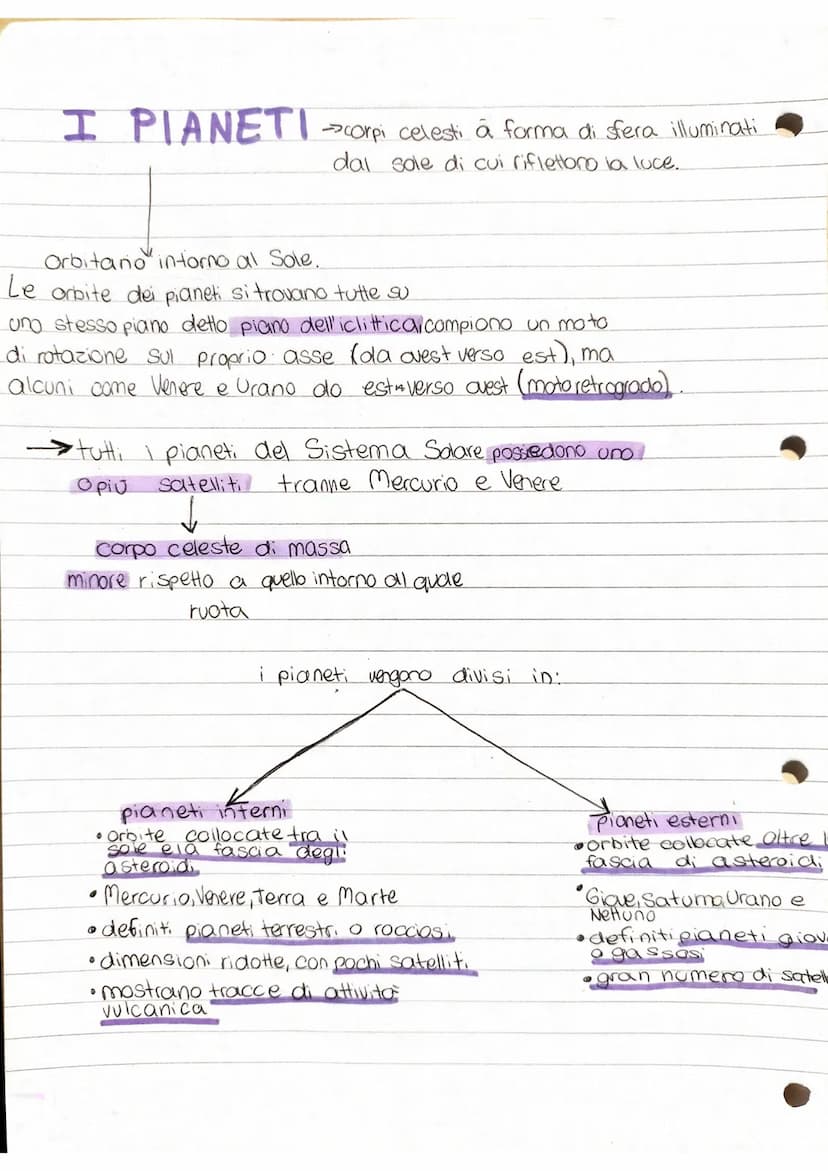 I PIANETI →corpi celesti a forma di sfera illuminati
dal sole di cui riflettono la luce.
orbitano intorno al Sole.
Le orbite dei pianeti si trovano tutte su
uno stesso piano detto piano dell'iclittica, compiono un moto
di rotazione sul proprio asse (da ovest verso est), ma
alcuni come Venere e Urano da est verso ovest (moto retrogrado).
→ tutti i pianeti del Sistema Solare possiedono uno
o più satelliti tranne Mercurio e Venere
corpo celeste di massa
minore rispetto a quello intorno al quale
ruota
i pianeti vengono divisi in:
pianeti interni
• orbite collocate tra il
sole e la fascia degli
asteroidi
• Mercurio, Venere, Terra e Marte
• definiti pianeti terrestri o rocciosi
• dimensioni ridotte, con pochi satelliti
• mostrano tracce di attività
vulcanica
Pianeti esterni
• orbite collocate oltre l
fascia di asteroidi
• Giove, Saturno, Urano e
Nettuno
• definiti pianeti giov
o gassosi
• gran numero di satell